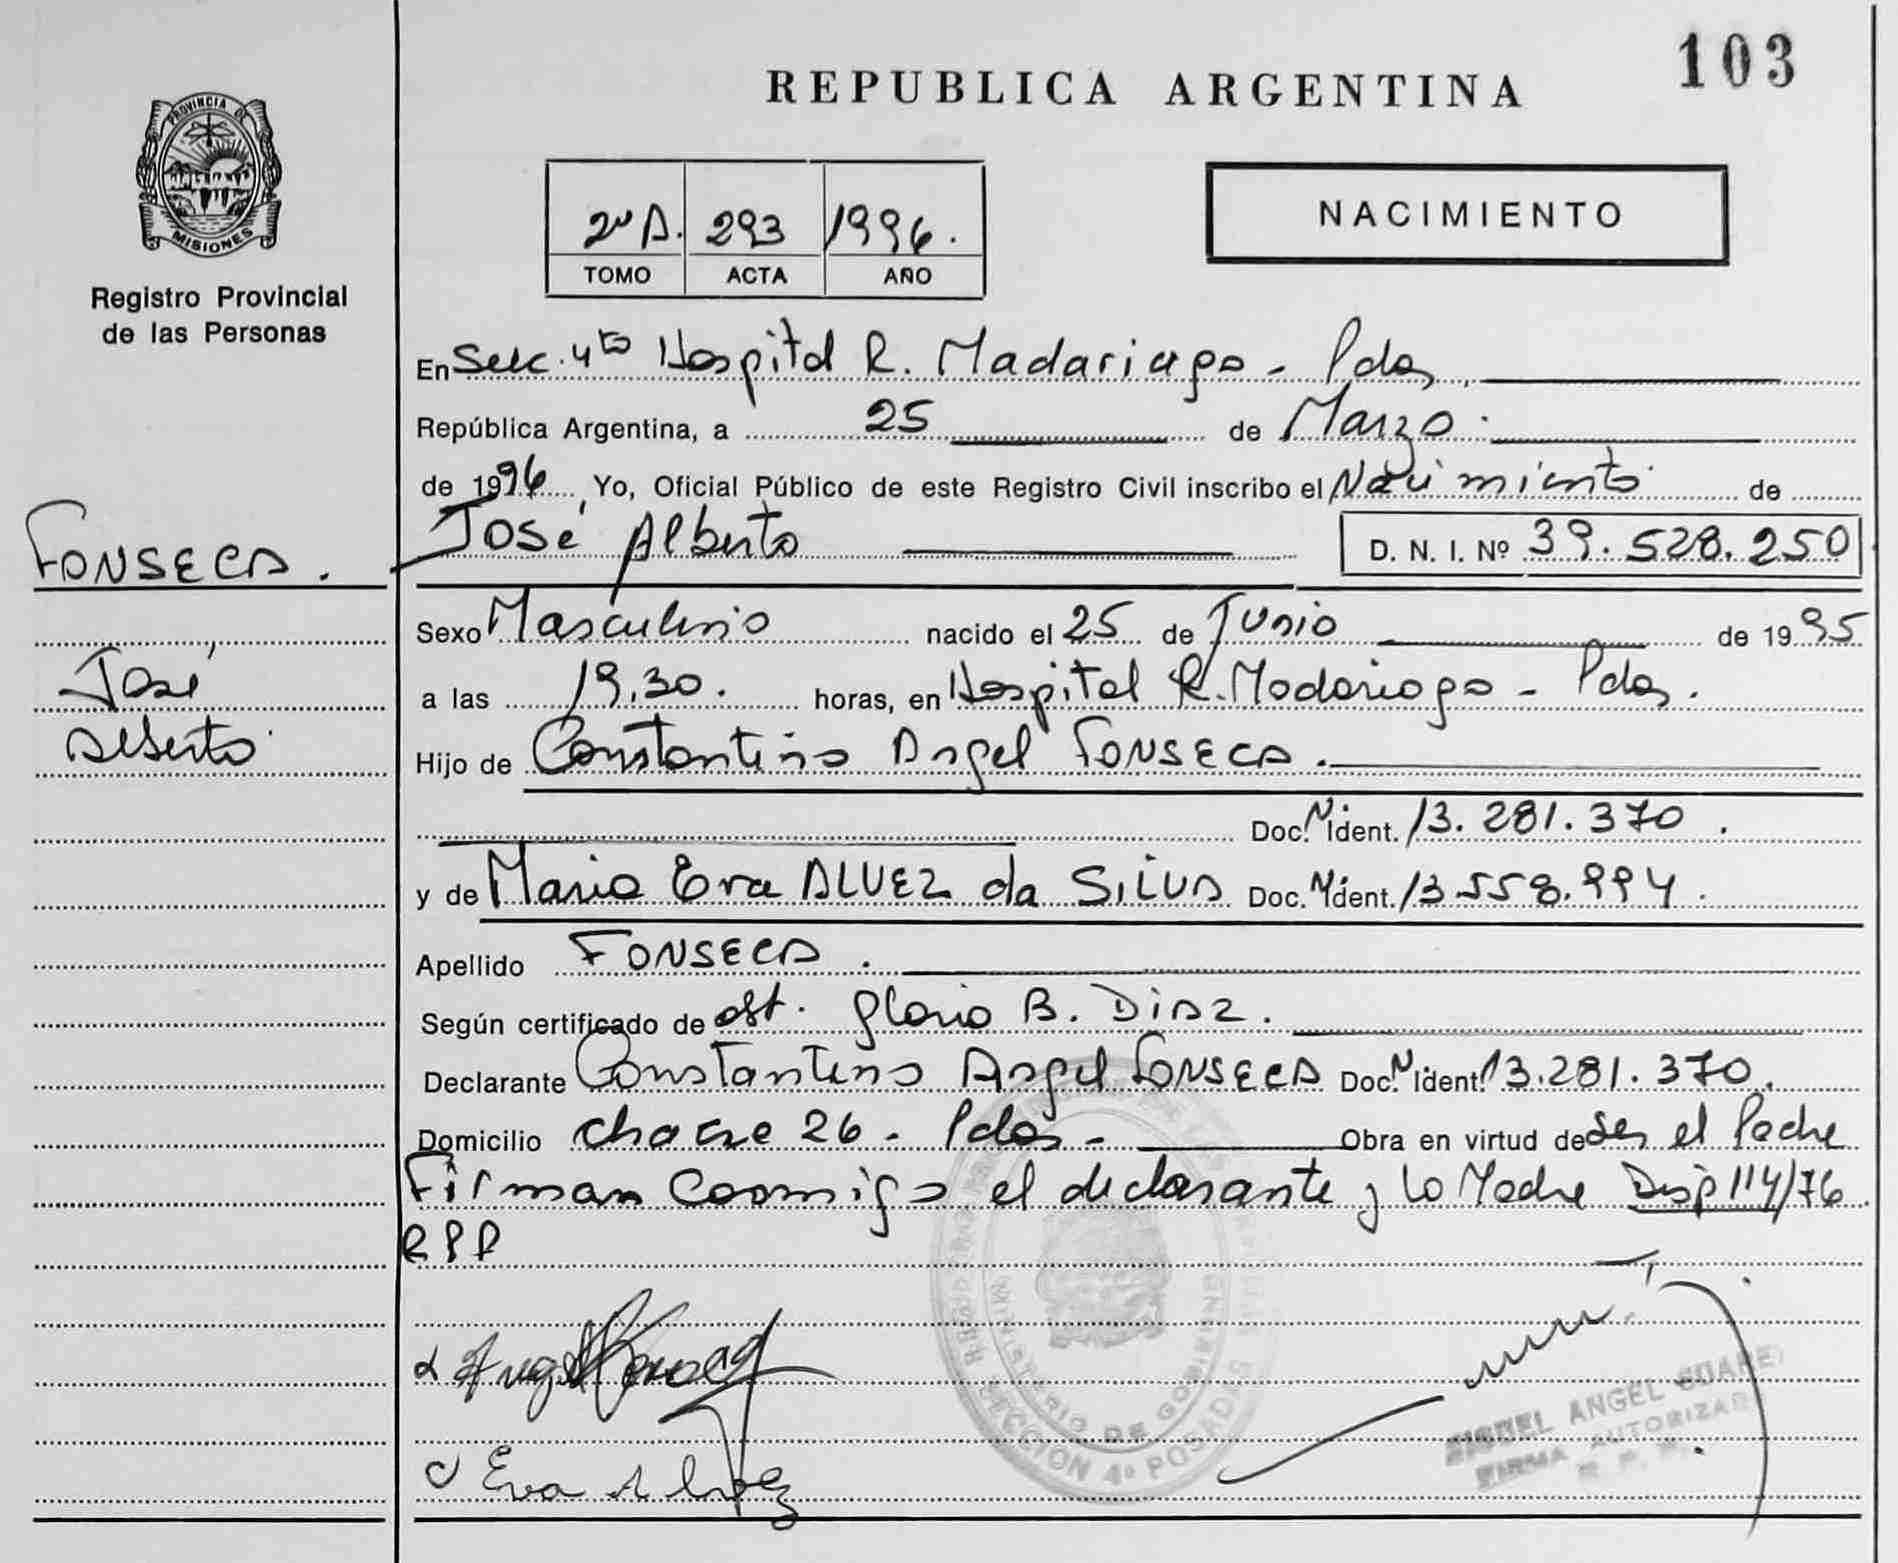 103
REPUBLICA ARGENTINA
PROVINCIA DE
MISIONES
Registro Provincial
de las Personas
2º A. 293 1996.
TOMO ACTA AÑO
NACIMIENTO
En Secc. 4ta Hospital R. Madariaga - Pdas,
República Argentina, a 25 de Marzo.
de 1996, Yo, Oficial Público de este Registro Civil inscribo el Nacimiento de
FONSECA. José Alberto D. N. I. Nº 39.528.250
Sexo Masculino nacido el 25 de Junio de 1995
José
a las 19,30. horas, en Hospital R. Madariaga - Pdas.
Alberto
Hijo de Constantino Angel FONSECA.
Doc. N ident. 13.281.370.
y de Maria Eva ALVEZ da SILVA Doc. N ident. 13.558.994.
Apellido FONSECA.
Según certificado de obst. Gloria B. Diaz.
Declarante Constantino Angel FONSECA Doc. N ident. 13.281.370.
Domicilio chacra 26 - Pdas - Obra en virtud de ser el Padre
Firman conmigo el declarante y la Madre Disp 114/76
RPP
Eva Alvez
MINISTERIO DE GOBIERNO
SECCION 4º POSADAS
MIGUEL ANGEL SUAREZ
FIRMA AUTORIZADA
R. P. P.